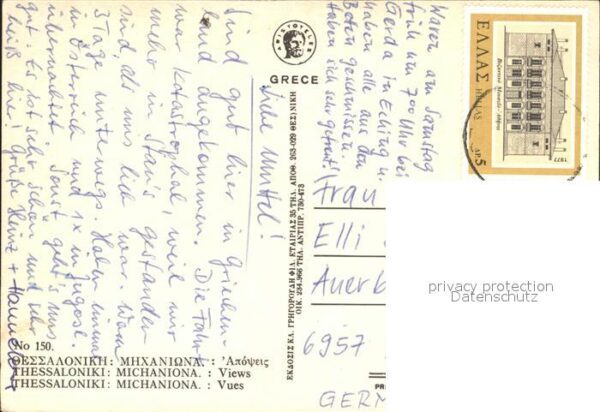 Liebe Mutti!
Sind gut hier in Griechen-
land angekommen. Die Fahrt
war katastrophal, weil wir
mehr in Staus gestanden
sind, als uns lieb war. Waren
3 Tage unterwegs. Haben einmal
in Österreich und 1 x in Jugosl.
übernachtet. Sonst geht's uns
gut. Es ist sehr schön und sehr
heiß hier! Grüße Heinz +
Waren am Samstag
früh um 7 00 Uhr bei
Gerda in Eching u.
haben alle aus den
Betten geschmissen.
Haben sich sehr gefreut!
ARISTOTELES
GREECE
ΕΛΛΑΣ HELLAS
Βυζαντινό Μουσείο - Αθήναι
ΔΡ 5
1977
Frau
Elli
Auerb
6957
GERM
privacy protection
Datenschutz
ΕΚΔΟΣΙΣ ΚΛ. ΓΡΗΓΟΡΟΥΔΗ ΦΙΛ. ΕΤΑΙΡΙΑΣ 35 ΤΗΛ. ΑΠΟΘ. 263-029 ΘΕΣ)ΝΙΚΗ
ΟΙΚ. 234.966 ΤΗΛ. ΑΝΤΙΠΡ. 730-473
No 150.
ΘΕΣΣΑΛΟΝΙΚΗ: ΜΗΧΑΝΙΩΝΑ. : Ἀπόψεις
THESSALONIKI: MICHANIONA. : Views
THESSALONIKI: MICHANIONA. : Vues
PR